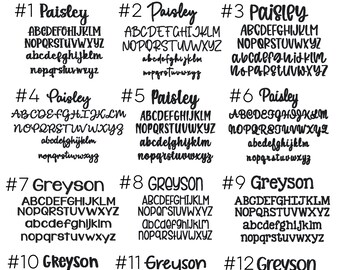 #1 Paisley
ABCDEFGHIJKLM
NOPQRSTUVWXYZ
abcdefghijklm
nopqrstuvwxyz
#2 Paisley
ABCDEFGHIJKLM
NOPQRSTUVWXYZ
abcdefghijklm
nopqrstuvwxyz
#3 PAISLEY
ABCDEFGHIJKLM
NOPQRSTUVWXYZ
abcdefghijklm
nopqrstuvwxyz
#4 Paisley
ABCDEFGHIJKLM
NOPQRSTUVWXYZ
abcdefghijklm
nopqrstuvwxyz
#5 Paisley
ABCDEFGHIJKLM
NOPQRSTUVWXYZ
abcdefghijklm
nopqrstuvwxyz
#6 Paisley
ABCDEFGHIJKLM
NOPQRSTUVWXYZ
abcdefghijklm
nopqrstuvwxyz
#7 Greyson
ABCDEFGHIJKLM
NOPQRSTUVWXYZ
abcdefghijklm
nopqrstuvwxyz
#8 GREYSON
ABCDEFGHIJKLM
NOPQRSTUVWXYZ
abcdefghijklm
nopqrstuvwxyz
#9 Greyson
ABCDEFGHIJKLM
NOPQRSTUVWXYZ
abcdefghijklm
nopqrstuvwxyz
#10 Greyson
#11 Greyson
#12 Greyson